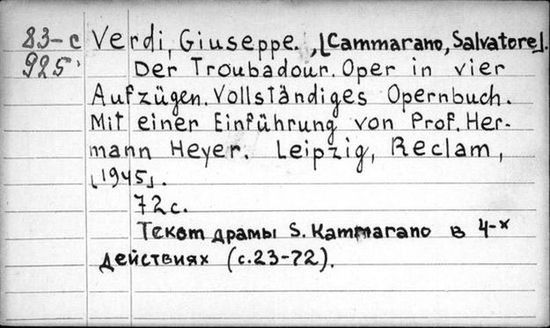 83-с Verdi, Giuseppe., [Cammarano, Salvatore].
925 Der Troubadour. Oper in vier
Aufzügen. Vollständiges Opernbuch.
Mit einer Einführung von Prof. Her-
mann Heyer. Leipzig, Reclam,
[1945].
72 с.
Текст драмы S. Kammarano в 4-х
действиях (с. 23-72).